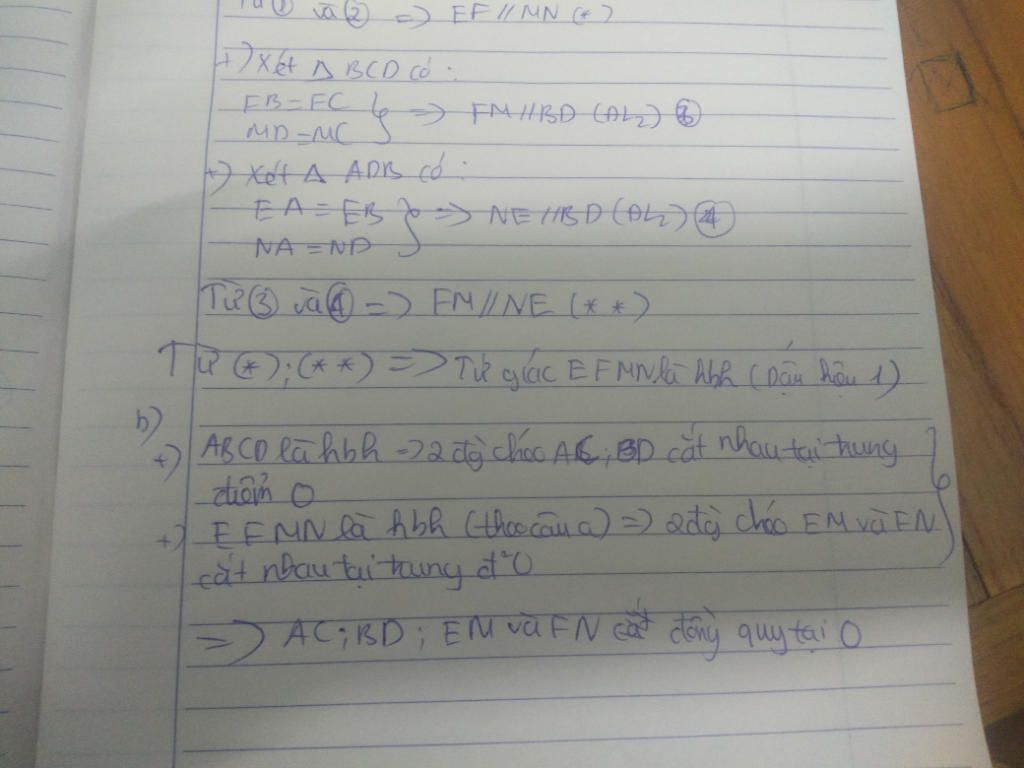 Từ ① và ② => EF // MN (*)
+) Xét Δ BCD có:
FB = FC
MD = MC } => FM // BD (ĐL2) ③
+) Xét Δ ADB có:
EA = EB
NA = ND } => NE // BD (ĐL2) ④
Từ ③ và ④ => FM // NE (* *)
Từ (*); (* *) => Tứ giác EFMN là hbh (Dấu hiệu 1)
b)
+) ABCD là hbh => 2 đg chéo AC; BD cắt nhau tại trung
điểm O
+) EFMN là hbh (theo câu a) => 2 đg chéo EM và FN
cắt nhau tại trung đ² O
=> AC; BD; EM và FN đồng quy tại O